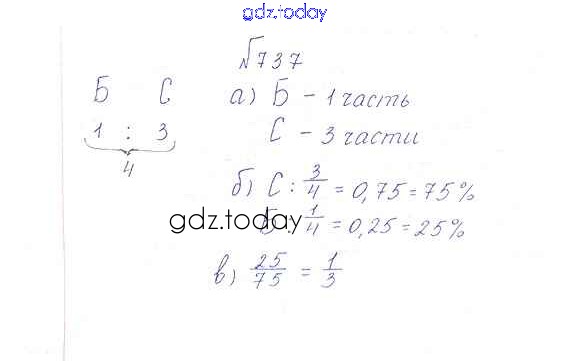 gdz.today
№737
Б С
1 : 3
4
а) Б – 1 часть
С – 3 части
б) С : 3/4 = 0,75 = 75%
Б : 1/4 = 0,25 = 25%
gdz.today
в) 25/75 = 1/3